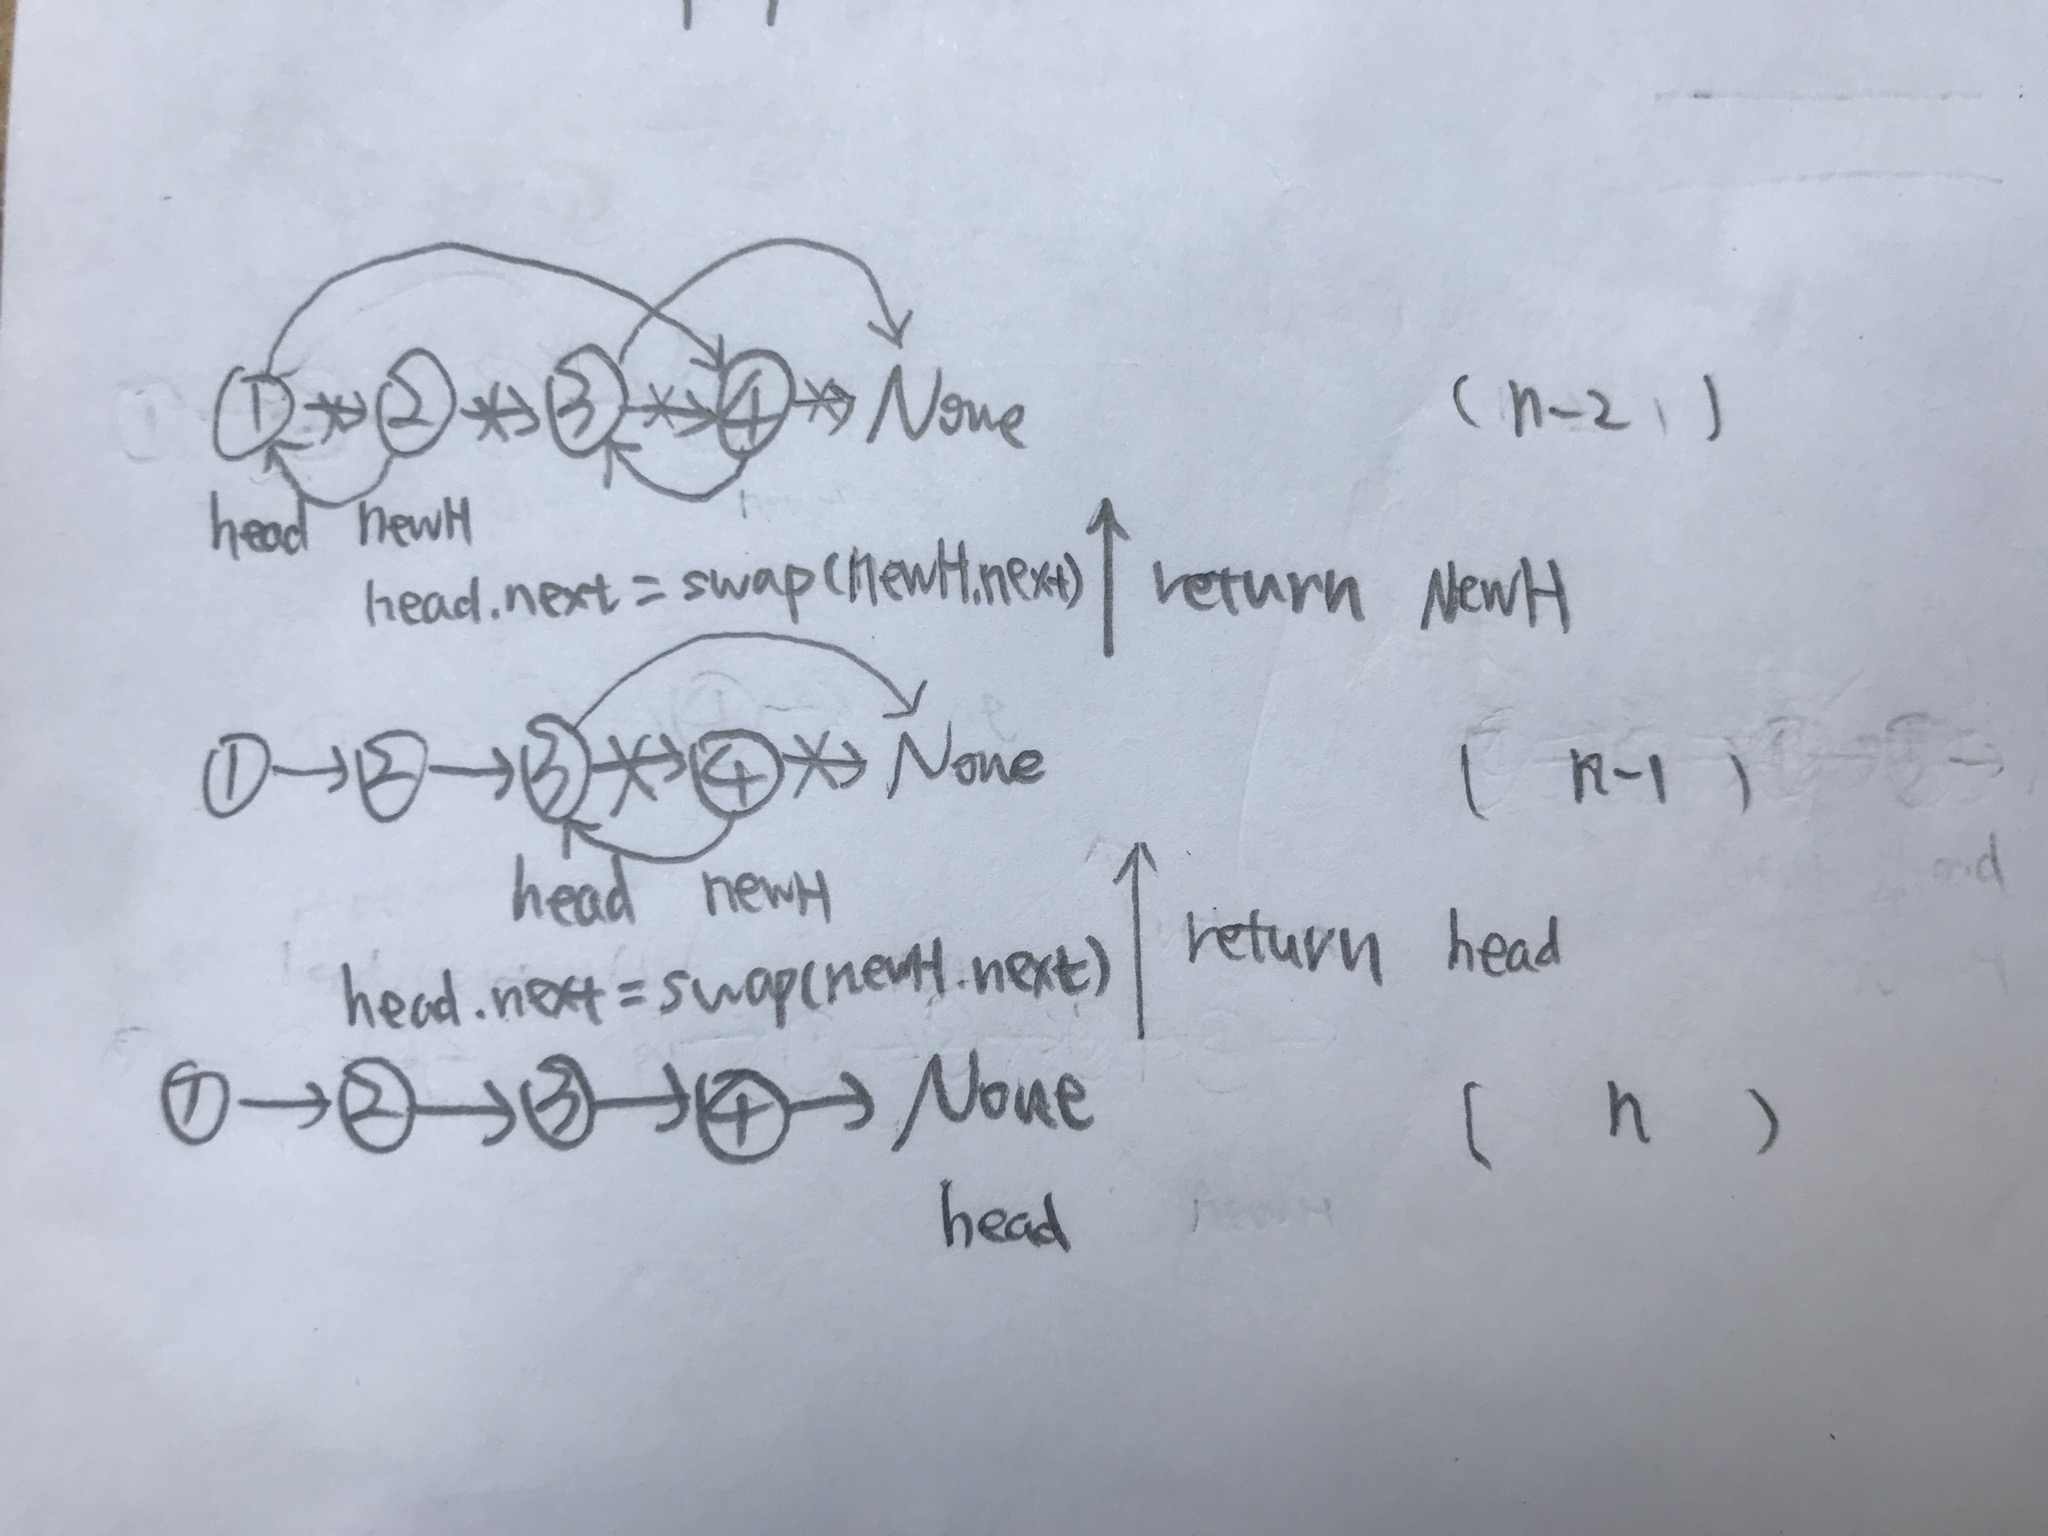 ① → ② → ③ → ④ → None (n-2)
head newH
head.next = swap(newH.next) ↑ return NewH
① → ② → ③ → ④ → None ( n-1 )
head newH
head.next = swap(newH.next) ↑ return head
① → ② → ③ → ④ → None ( n )
head